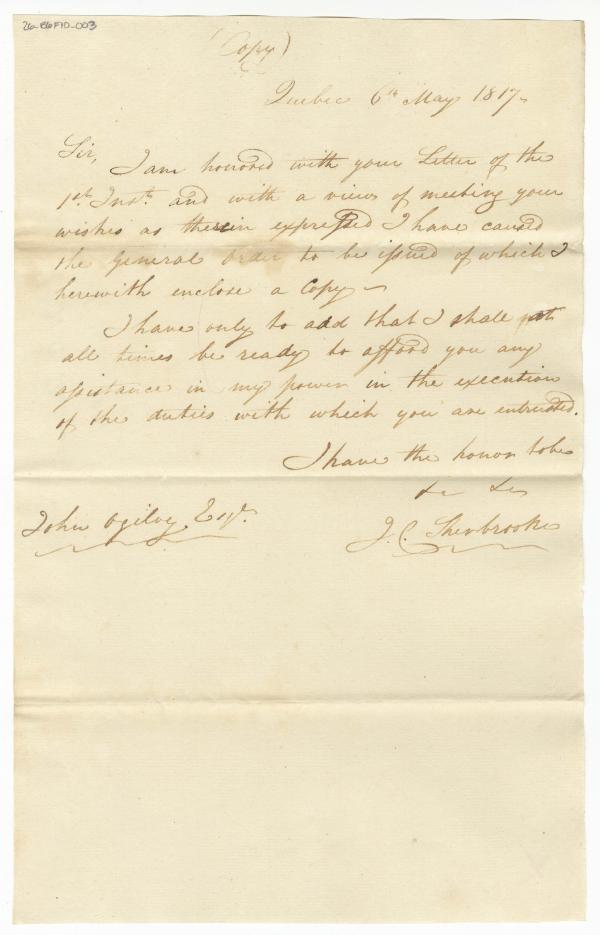 26-B6F10-003
(Copy)
Quebec 6th May 1817.
Sir,
I am honored with your Letter of the
1st. Inst. and with a view of meeting your
wishes as therein expressed I have caused
the General Order to be issued of which I
herewith enclose a Copy
I have only to add that I shall at
all times be ready to afford you any
assistance in my power in the execution
of the duties with which you are intrusted.
I have the honor to be
&c &c
John Ogilvy Esqr.
J. C. Sherbrooke